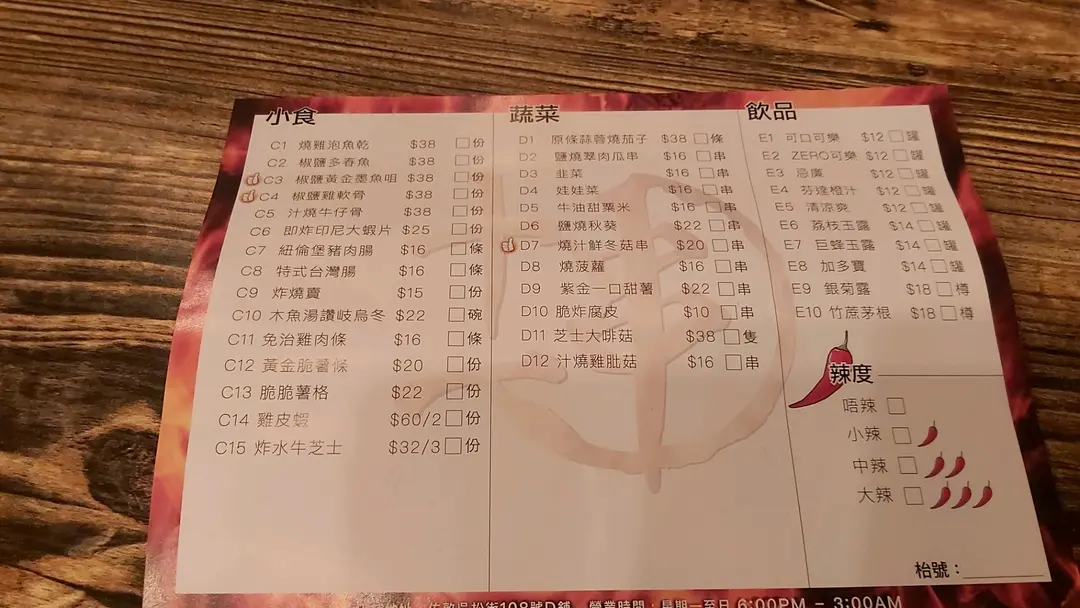 小食
C1 燒雞泡魚乾 $38 份
C2 椒鹽多春魚 $38 份
C3 椒鹽黃金墨魚咀 $38 份
C4 椒鹽雞軟骨 $38 份
C5 汁燒牛仔骨 $38 份
C6 即炸印尼大蝦片 $25 份
C7 紐倫堡豬肉腸 $16 條
C8 特式台灣腸 $16 條
C9 炸燒賣 $15 份
C10 木魚湯讚岐烏冬 $22 碗
C11 免治雞肉條 $16 條
C12 黃金脆薯條 $20 份
C13 脆脆薯格 $22 份
C14 雞皮蝦 $60/2 份
C15 炸水牛芝士 $32/3 份
蔬菜
D1 原條蒜蓉燒茄子 $38 條
D2 鹽燒翠肉瓜串 $16 串
D3 韭菜 $16 串
D4 娃娃菜 $16 串
D5 牛油甜粟米 $16 串
D6 鹽燒秋葵 $22 串
D7 燒汁鮮冬菇串 $20 串
D8 燒菠蘿 $16 串
D9 紫金一口甜薯 $22 串
D10 脆炸腐皮 $10 串
D11 芝士大啡菇 $38 隻
D12 汁燒雞肶菇 $16 串
飲品
E1 可口可樂 $12 罐
E2 ZERO可樂 $12 罐
E3 忌廉 $12 罐
E4 芬達橙汁 $12 罐
E5 清涼爽 $12 罐
E6 荔枝玉露 $14 罐
E7 巨蜂玉露 $14 罐
E8 加多寶 $14 罐
E9 銀菊露 $18 樽
E10 竹蔗茅根 $18 樽
辣度
唔辣
小辣
中辣
大辣
枱號：
佐敦吳松街108號D舖 營業時間：星期一至日 6:00PM - 3:00AM